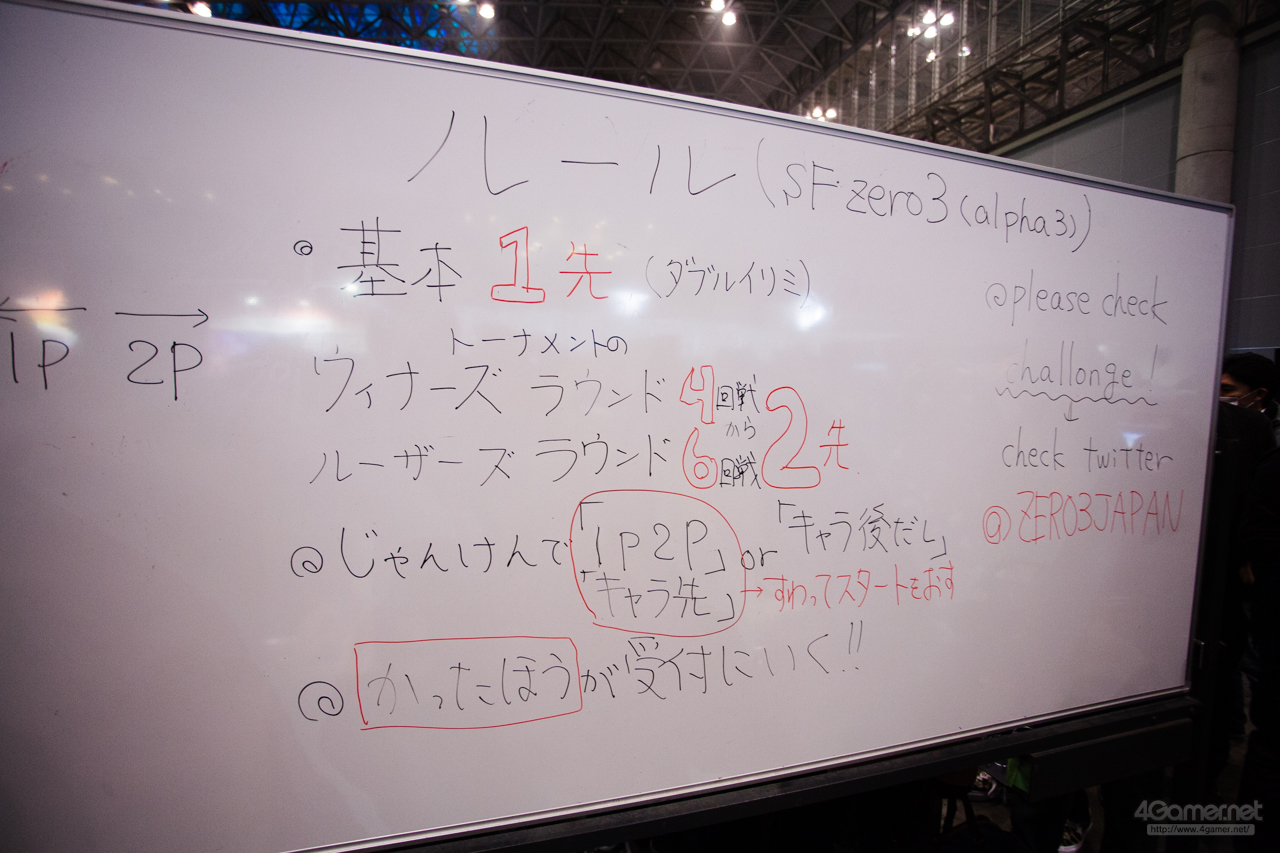 ルール(SF zero3(alpha3))
◎基本1先(ダブルイリミ)
トーナメントの
ウィナーズ ラウンド4回戦
から
ルーザーズ ラウンド6回戦
2先
◎じゃんけんで「1P2P」or「キャラ後だし」
「キャラ先」→すわってスタートをおす
◎かったほうが受付にいく!!
←1P 2P→
◎please check
challonge!
↓
check twitter
@ZERO3JAPAN
4Gamer.net
http://www.4gamer.net/